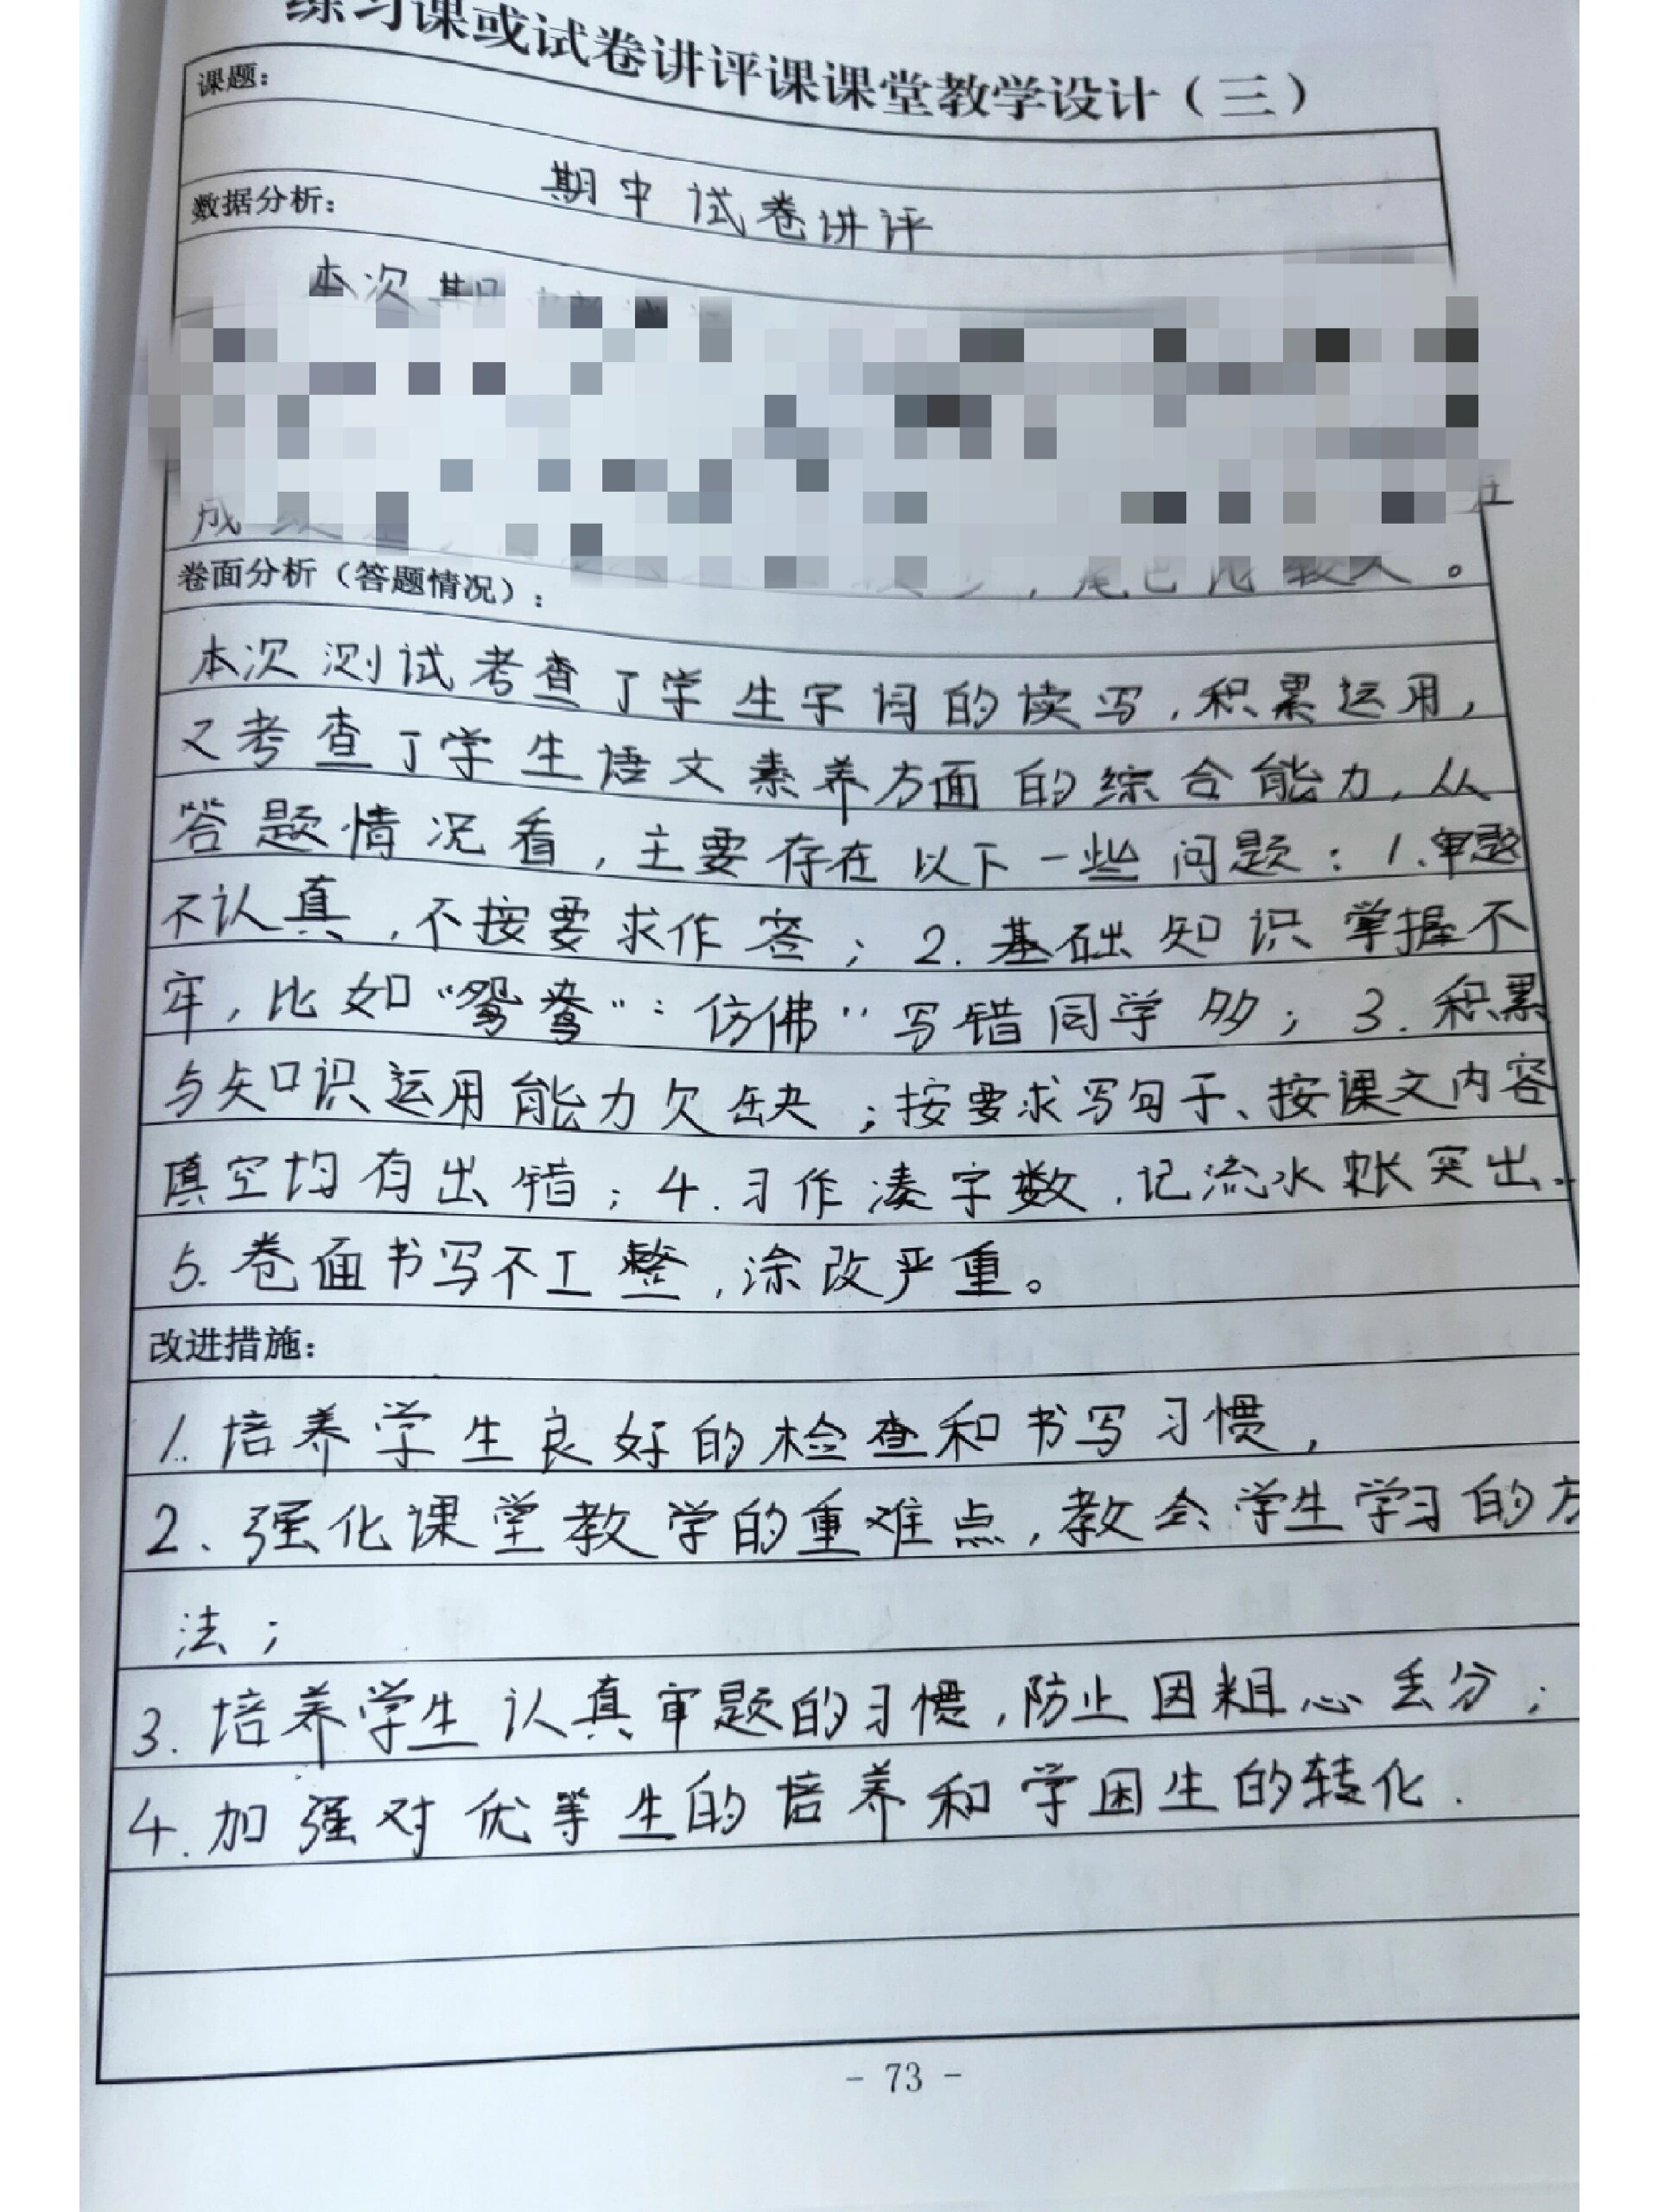 练习课或试卷讲评课课堂教学设计（三）
课题：
期中试卷讲评
数据分析：
本次期
成
尾巴比较大。
卷面分析（答题情况）：
本次测试考查了学生字词的读写，积累运用，
又考查了学生语文素养方面的综合能力，从
答题情况看，主要存在以下一些问题：1.审题
不认真，不按要求作答；2.基础知识掌握不
牢，比如“鸳鸯”“仿佛”写错同学多；3.积累
与知识运用能力欠缺；按要求写句子、按课文内容
填空均有出错；4.习作凑字数，记流水账突出。
5.卷面书写不工整，涂改严重。
改进措施：
1.培养学生良好的检查和书写习惯，
2、强化课堂教学的重难点，教会学生学习的方
法；
3.培养学生认真审题的习惯，防止因粗心丢分；
4.加强对优等生的培养和学困生的转化.
- 73 -